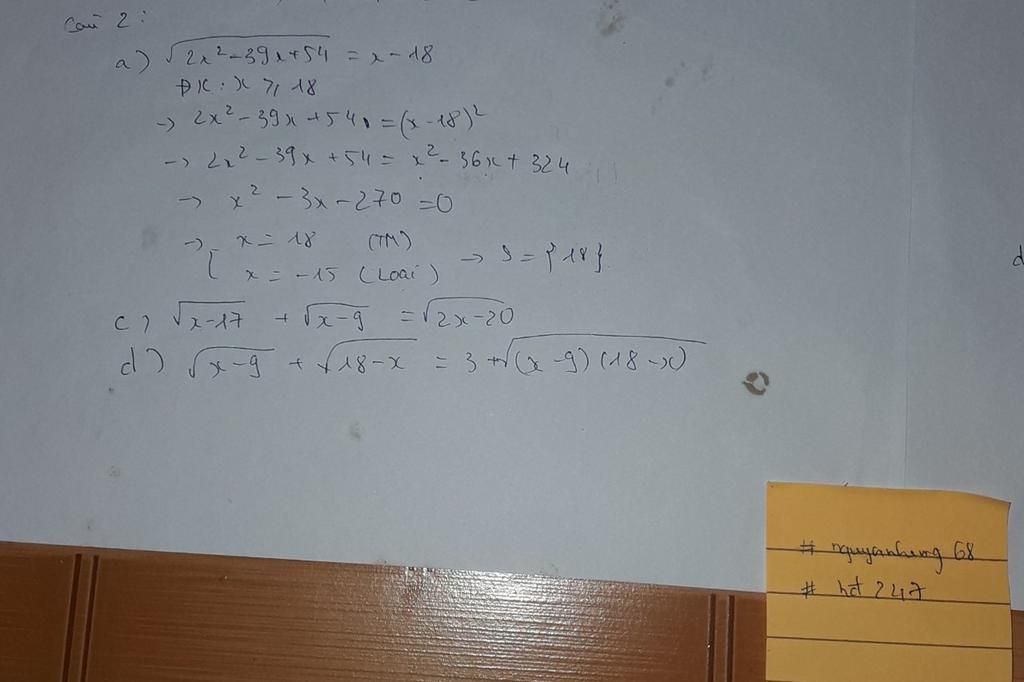 Câu 2:
a) √(2x² - 39x + 54) = x - 18
ĐK: x ≥ 18
→ 2x² - 39x + 54 = (x - 18)²
→ 2x² - 39x + 54 = x² - 36x + 324
→ x² - 3x - 270 = 0
→ [ x = 18 (TM)
x = -15 (Loại) → S = {18}
c) √(x-17) + √(x-9) = √(2x-20)
d) √(x-9) + √(18-x) = 3 + √((x-9)(18-x))
d
# nguyanhemg 68
# hd 247